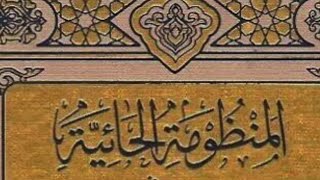 المَنْظُومَةُ الحَائِيَّةُ